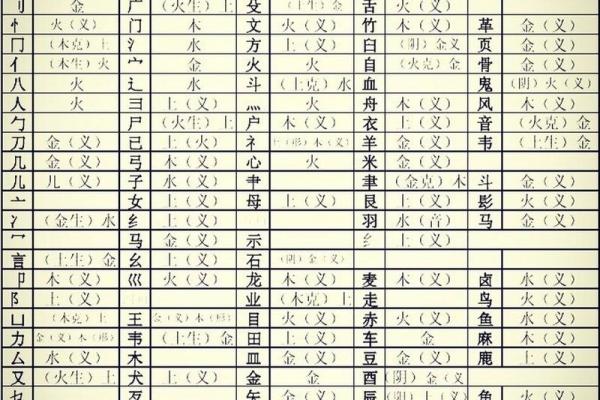 刂 金 广 (火生)土 殳 (土生)金 舌 火(义)
忄 火(义) 门 木 文 火(义) 竹 木(义) 革 金(义)
冂 (木克)土 氵 水 方 土(义) 臼 (阴)金义 页 金(义)
亻 (木生)火 宀 金 火 火 自 (火克)金 骨 金(义)
八 火 辶 水 斗 (土克)水 血 鬼 (阴)火(义)
人 火 彐 土(义) 灬 火 舟 木(义) 风 木(义)
勹 尸 (火生)土 户 木(义) 衣 土(义) 音 (火克)金
刀 金(义) 已 土(火 礻 土(形)木(义) 羊 金(义) 韦 (土生)金
几 金(义) 弓 木(义) 心 火 米 金(义)
儿 儿(义) 子 水(义) 肀 聿 (金克)木 斗 金(义)
亠 女 土(义) 母 土(义) 艮 土(义) 髟 火(义)
冫 (金生)水 纟 土(义) 羽 水(音) 马 金(义)
冖 马 金(义) 示 纟 土(义)
言 (土生)金 幺 土(义) 石 (阴)金(义)
卩 木(义) 巛 火(义) 龙 木(义) 麦 木(义) 卤 水(义)
阝 土(义) 业 (木克)土 走 鸟 火(义)
凵 (木克)土 王 金(义)木(形) 目 火(义) 赤 火(义) 鱼 水(义)
力 金(义)木(形) 韦 (土生)金 田 土(义) 车 金 麻 木(义)
厶 水(义) 木 皿 金(义) 豆 金(义) 鹿 土(义)
又 (火生)土 犬 土(义) 金 金 酉 (阴)金(义
金(义) 歹 金(义) 矢 金(义) 辰 (阴)土(义) 角 火(义)